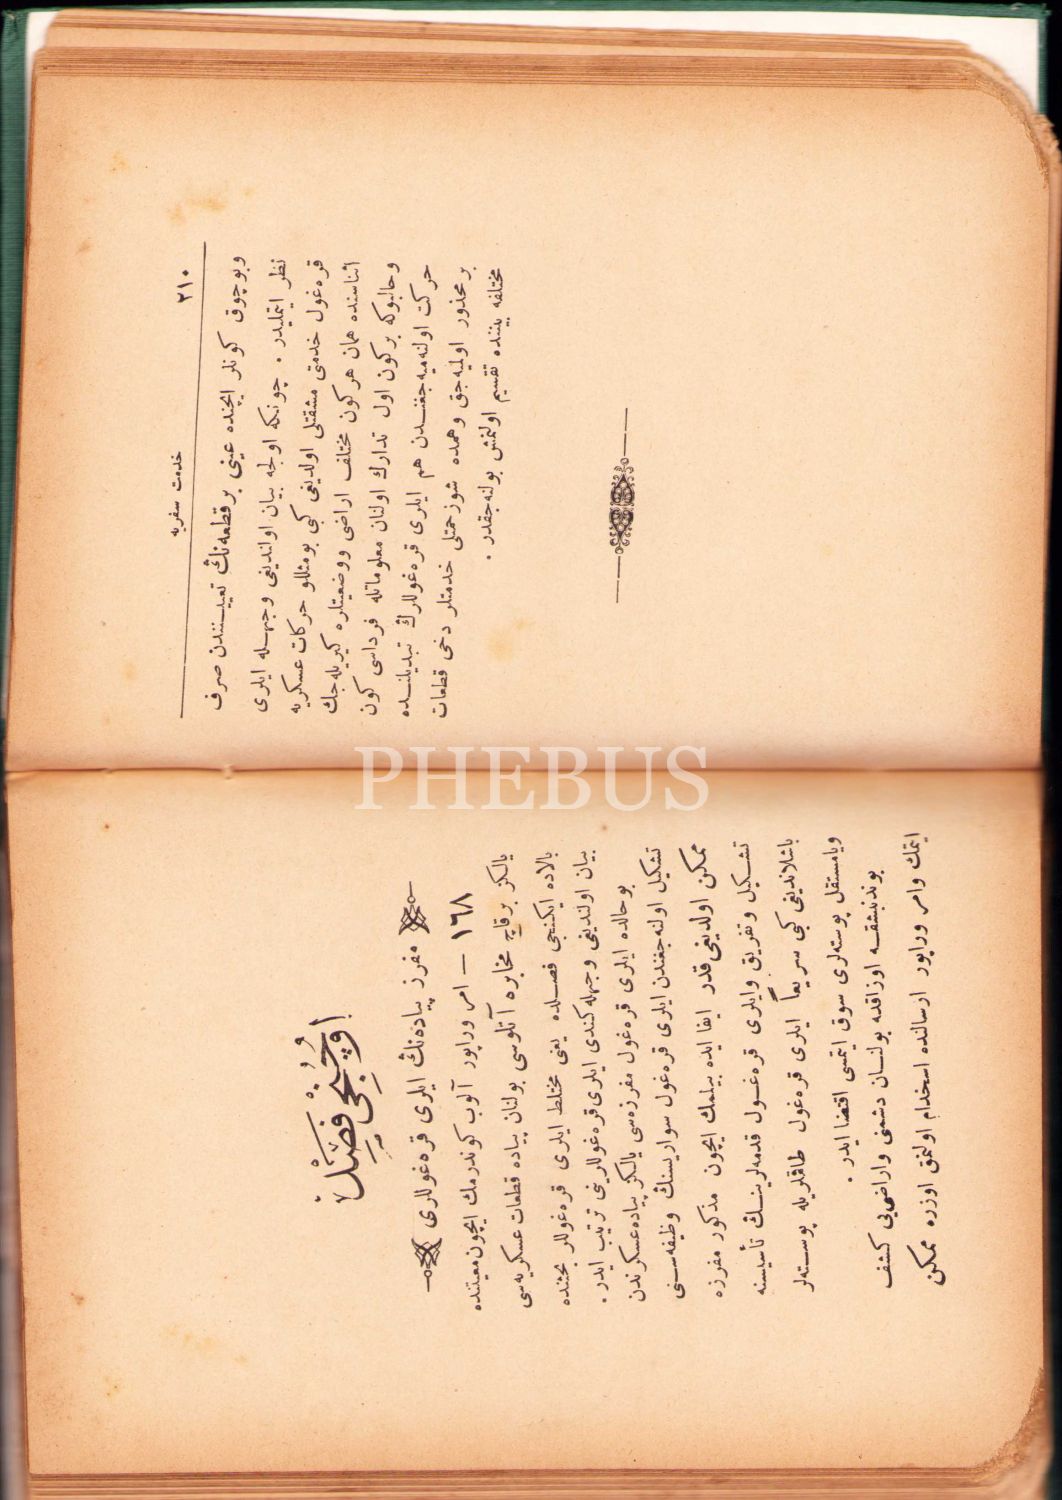 ٢١٠
خدمت سفریه
وبوچوق کونلر ایچنده عینی برقطعه‌نك تعییـنندن صرف
نظر ایتملیدر . چونکه اولجه بیان اولندیغی وجهـله ایلری
قره‌غول خدمتی مشقتلی اولدیغی کبی بومثللو حرکات عسکریه
اثناسنده همان هرکون مختلف اراضی ووضعیتلره کیریله‌جك
وحالبوکه برکون اول تدارك اولنان معلوماتله فرداسی کون
حرکت اولنه‌میه‌جغنـدن هم ایلری قره‌غوللرك تبدیلنـده
برمحذور اولمیه‌جق وهمده شوزحمتلی خدمتلر دخی قطعات
مختلفه بیننده تقسیم اولنمش بولنه‌جقدر .
اوچنجی فصل
مفرز پیاده‌نك ایلری قره‌غوللری
١٦٨ — امر وراپور آلوب کوندرمك ایچون معیتنده
یالکز برقاچ مخابره آتلوسی بولنان پیاده قطعات عسکریه‌سی
بالاده ایکنجی فصـلده یعنی مختلط ایلری قره‌غوللر بحثنده
بیان اولندیغی وجهله کندی ایلری قره‌غوللرینی ترتیب ایدر .
بوحالده ایلری قره‌غول مفرزه‌سی یالکز پیاده عسکرندن
تشکیل اولنه‌جغندن ایلری قره‌غول سواریسنك وظیفه‌سـنی
ممکن اولدیغی قدر ایفا ایده بیلمك ایچون مذکور مفرزه
تشـکیل وتفریق وایلری قره‌غـول قدمه‌لرینـك تأسیسنه
باشلاندیغی کبی سریعاً ایلری قره‌غول طاقملریله پوسـته‌لر
ویامستقل پوسته‌لری سوق ایتمسی اقتضا ایدر .
بوندنبشقـه اوزاقده بولنـان دشمنی واراضی‌یی کشف
ایتمك وامر وراپور ارسالنده استخدام اولنمق اوزره ممکن
PHEBUS